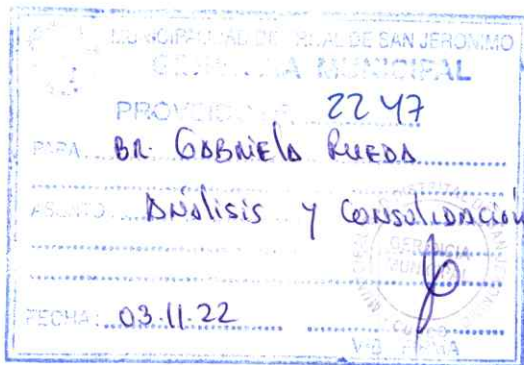 MUNICIPALIDAD DISTRITAL DE SAN JERONIMO
GERENCIA MUNICIPAL
PROVEIDO N° 2247
PARA: BR. GABRIELA RUEDA
ASUNTO: ANÁLISIS Y CONSOLIDACIÓN
GERENCIA
MUNICIPAL
CUSCO
FECHA: 03.11.22
V°B° FIRMA